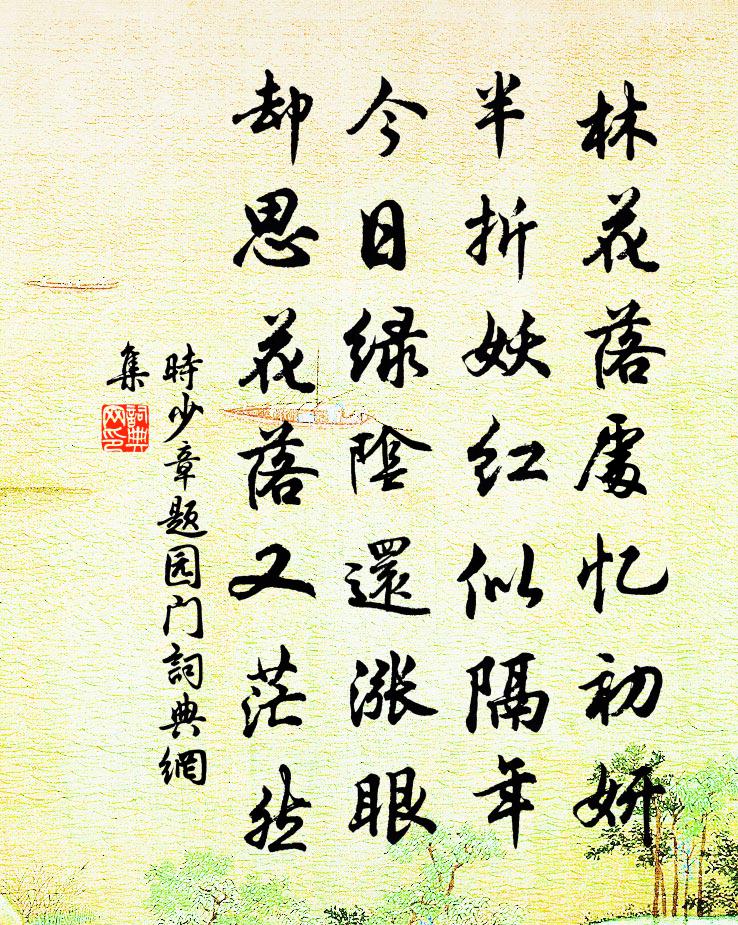 林花落處忆初妍
半折妖红似隔年
今日绿陰還漲眼
却思花落又茫然
時少章题园门詞典網
集
詞典
网印